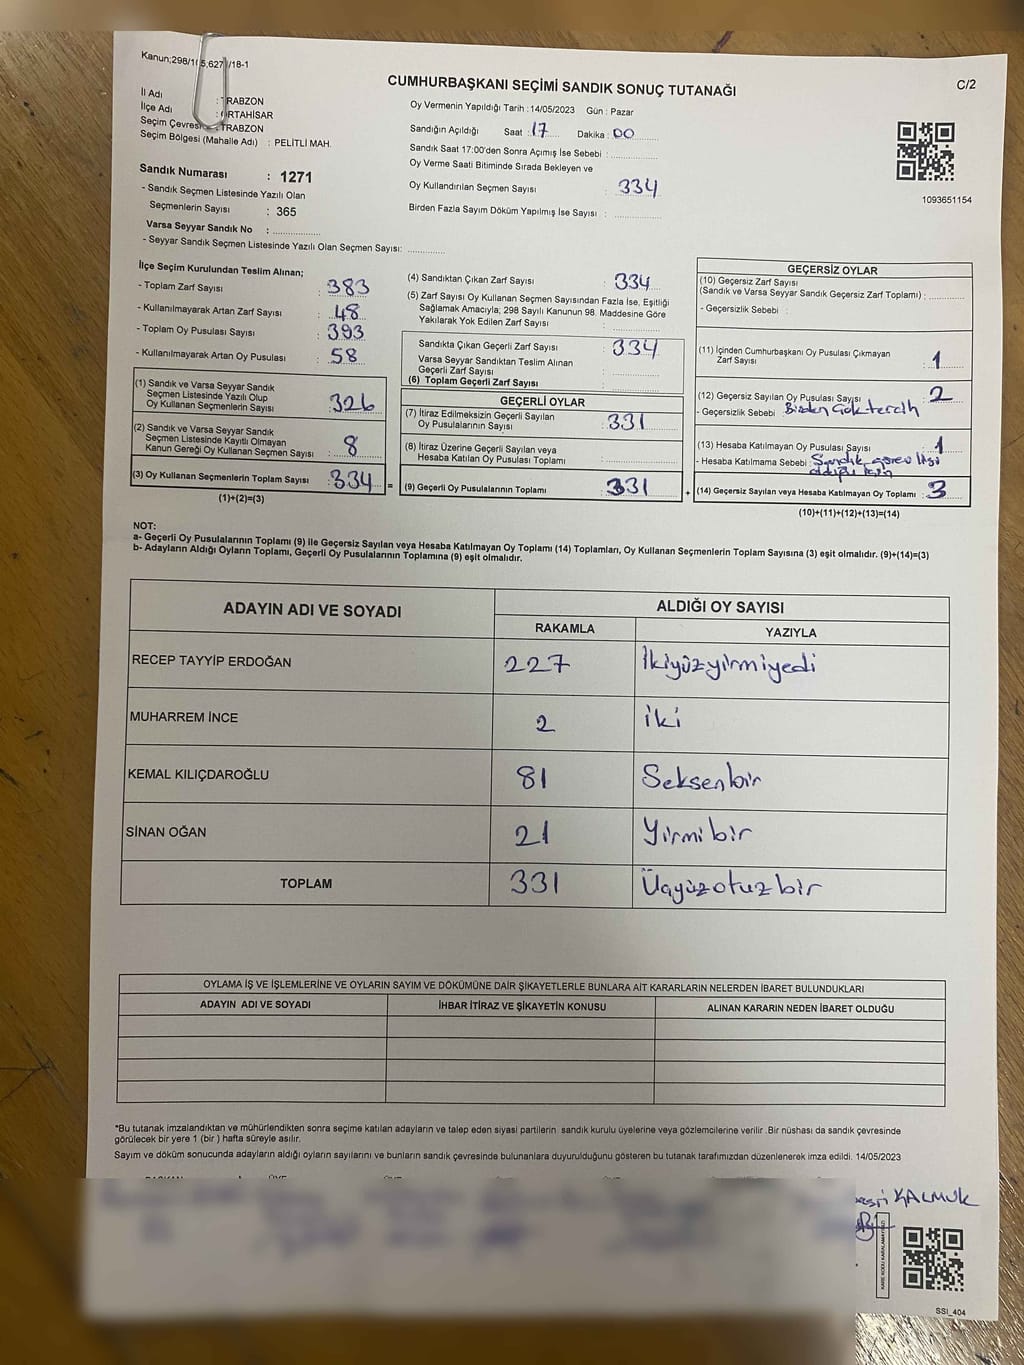 Kanun;298/1(5,627)/18-1
CUMHURBAŞKANI SEÇİMİ SANDIK SONUÇ TUTANAĞI
C/2
İl Adı : TRABZON
İlçe Adı : ORTAHİSAR
Seçim Çevresi : TRABZON
Seçim Bölgesi (Mahalle Adı) : PELİTLİ MAH.
Sandık Numarası : 1271
- Sandık Seçmen Listesinde Yazılı Olan
Seçmenlerin Sayısı : 365
Varsa Seyyar Sandık No :
- Seyyar Sandık Seçmen Listesinde Yazılı Olan Seçmen Sayısı:
Oy Vermenin Yapıldığı Tarih : 14/05/2023 Gün : Pazar
Sandığın Açıldığı Saat : 17 Dakika : 00
Sandık Saat 17:00'den Sonra Açımış İse Sebebi :
Oy Verme Saati Bitiminde Sırada Bekleyen ve
Oy Kullandırılan Seçmen Sayısı : 334
Birden Fazla Sayım Döküm Yapılmış İse Sayısı :
1093651154
İlçe Seçim Kurulundan Teslim Alınan;
- Toplam Zarf Sayısı : 383
- Kullanılmayarak Artan Zarf Sayısı : 48
- Toplam Oy Pusulası Sayısı : 393
- Kullanılmayarak Artan Oy Pusulası : 58
(1) Sandık ve Varsa Seyyar Sandık
Seçmen Listesinde Yazılı Olup
Oy Kullanan Seçmenlerin Sayısı : 326
(2) Sandık ve Varsa Seyyar Sandık
Seçmen Listesinde Kayıtlı Olmayan
Kanun Gereği Oy Kullanan Seçmen Sayısı : 8
(3) Oy Kullanan Seçmenlerin Toplam Sayısı : 334 =
(1)+(2)=(3)
(4) Sandıktan Çıkan Zarf Sayısı : 334
(5) Zarf Sayısı Oy Kullanan Seçmen Sayısından Fazla İse, Eşitliği
Sağlamak Amacıyla; 298 Sayılı Kanunun 98. Maddesine Göre
Yakılarak Yok Edilen Zarf Sayısı :
Sandıkta Çıkan Geçerli Zarf Sayısı : 334
Varsa Seyyar Sandıktan Teslim Alınan
Geçerli Zarf Sayısı :
(6) Toplam Geçerli Zarf Sayısı :
GEÇERLİ OYLAR
(7) İtiraz Edilmeksizin Geçerli Sayılan
Oy Pusulalarının Sayısı : 331
(8) İtiraz Üzerine Geçerli Sayılan veya
Hesaba Katılan Oy Pusulası Toplamı :
(9) Geçerli Oy Pusulalarının Toplamı : 331 +
GEÇERSİZ OYLAR
(10) Geçersiz Zarf Sayısı
(Sandık ve Varsa Seyyar Sandık Geçersiz Zarf Toplamı) :
- Geçersizlik Sebebi :
(11) İçinden Cumhurbaşkanı Oy Pusulası Çıkmayan
Zarf Sayısı : 1
(12) Geçersiz Sayılan Oy Pusulası Sayısı : 2
- Geçersizlik Sebebi : Birden Çok tercih
(13) Hesaba Katılmayan Oy Pusulası Sayısı : 1
- Hesaba Katılmama Sebebi : Sandık görevlisi
olduğu için
(14) Geçersiz Sayılan veya Hesaba Katılmayan Oy Toplamı : 3
(10)+(11)+(12)+(13)=(14)
NOT:
a- Geçerli Oy Pusulalarının Toplamı (9) ile Geçersiz Sayılan veya Hesaba Katılmayan Oy Toplamı (14) Toplamları, Oy Kullanan Seçmenlerin Toplam Sayısına (3) eşit olmalıdır. (9)+(14)=(3)
b- Adayların Aldığı Oyların Toplamı, Geçerli Oy Pusulalarının Toplamına (9) eşit olmalıdır.
ADAYIN ADI VE SOYADI ALDIĞI OY SAYISI
RAKAMLA YAZIYLA
RECEP TAYYİP ERDOĞAN 227 İkiyüzyirmiyedi
MUHARREM İNCE 2 iki
KEMAL KILIÇDAROĞLU 81 Seksenbir
SİNAN OĞAN 21 Yirmibir
TOPLAM 331 Üçyüzotuzbir
OYLAMA İŞ VE İŞLEMLERİNE VE OYLARIN SAYIM VE DÖKÜMÜNE DAİR ŞİKAYETLERLE BUNLARA AİT KARARLARIN NELERDEN İBARET BULUNDUKLARI
ADAYIN ADI VE SOYADI İHBAR İTİRAZ VE ŞİKAYETİN KONUSU ALINAN KARARIN NEDEN İBARET OLDUĞU
*Bu tutanak imzalandıktan ve mühürlendikten sonra seçime katılan adayların ve talep eden siyasi partilerin sandık kurulu üyelerine veya gözlemcilerine verilir .Bir nüshası da sandık çevresinde
görülecek bir yere 1 (bir ) hafta süreyle asılır.
Sayım ve döküm sonucunda adayların aldığı oyların sayılarını ve bunların sandık çevresinde bulunanlara duyurulduğunu gösteren bu tutanak tarafımızdan düzenlenerek imza edildi. 14/05/2023
KALMUK
SSI_404